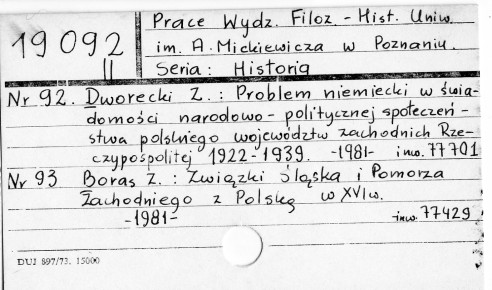 19 092
II
Prace Wydz. Filoz.-Hist. Uniw.
im. A. Mickiewicza w Poznaniu.
Seria: Historia
Nr 92. Dworecki Z.: Problem niemiecki w świa-
domości narodowo-politycznej społeczeń-
stwa polskiego województw zachodnich Rze-
czypospolitej 1922-1939. -1981- inw. 77701
Nr 93 Boras Z.: Związki Śląska i Pomorza
Zachodniego z Polską w XVI w.
-1981- inw. 77429
DUJ 897/73. 15000